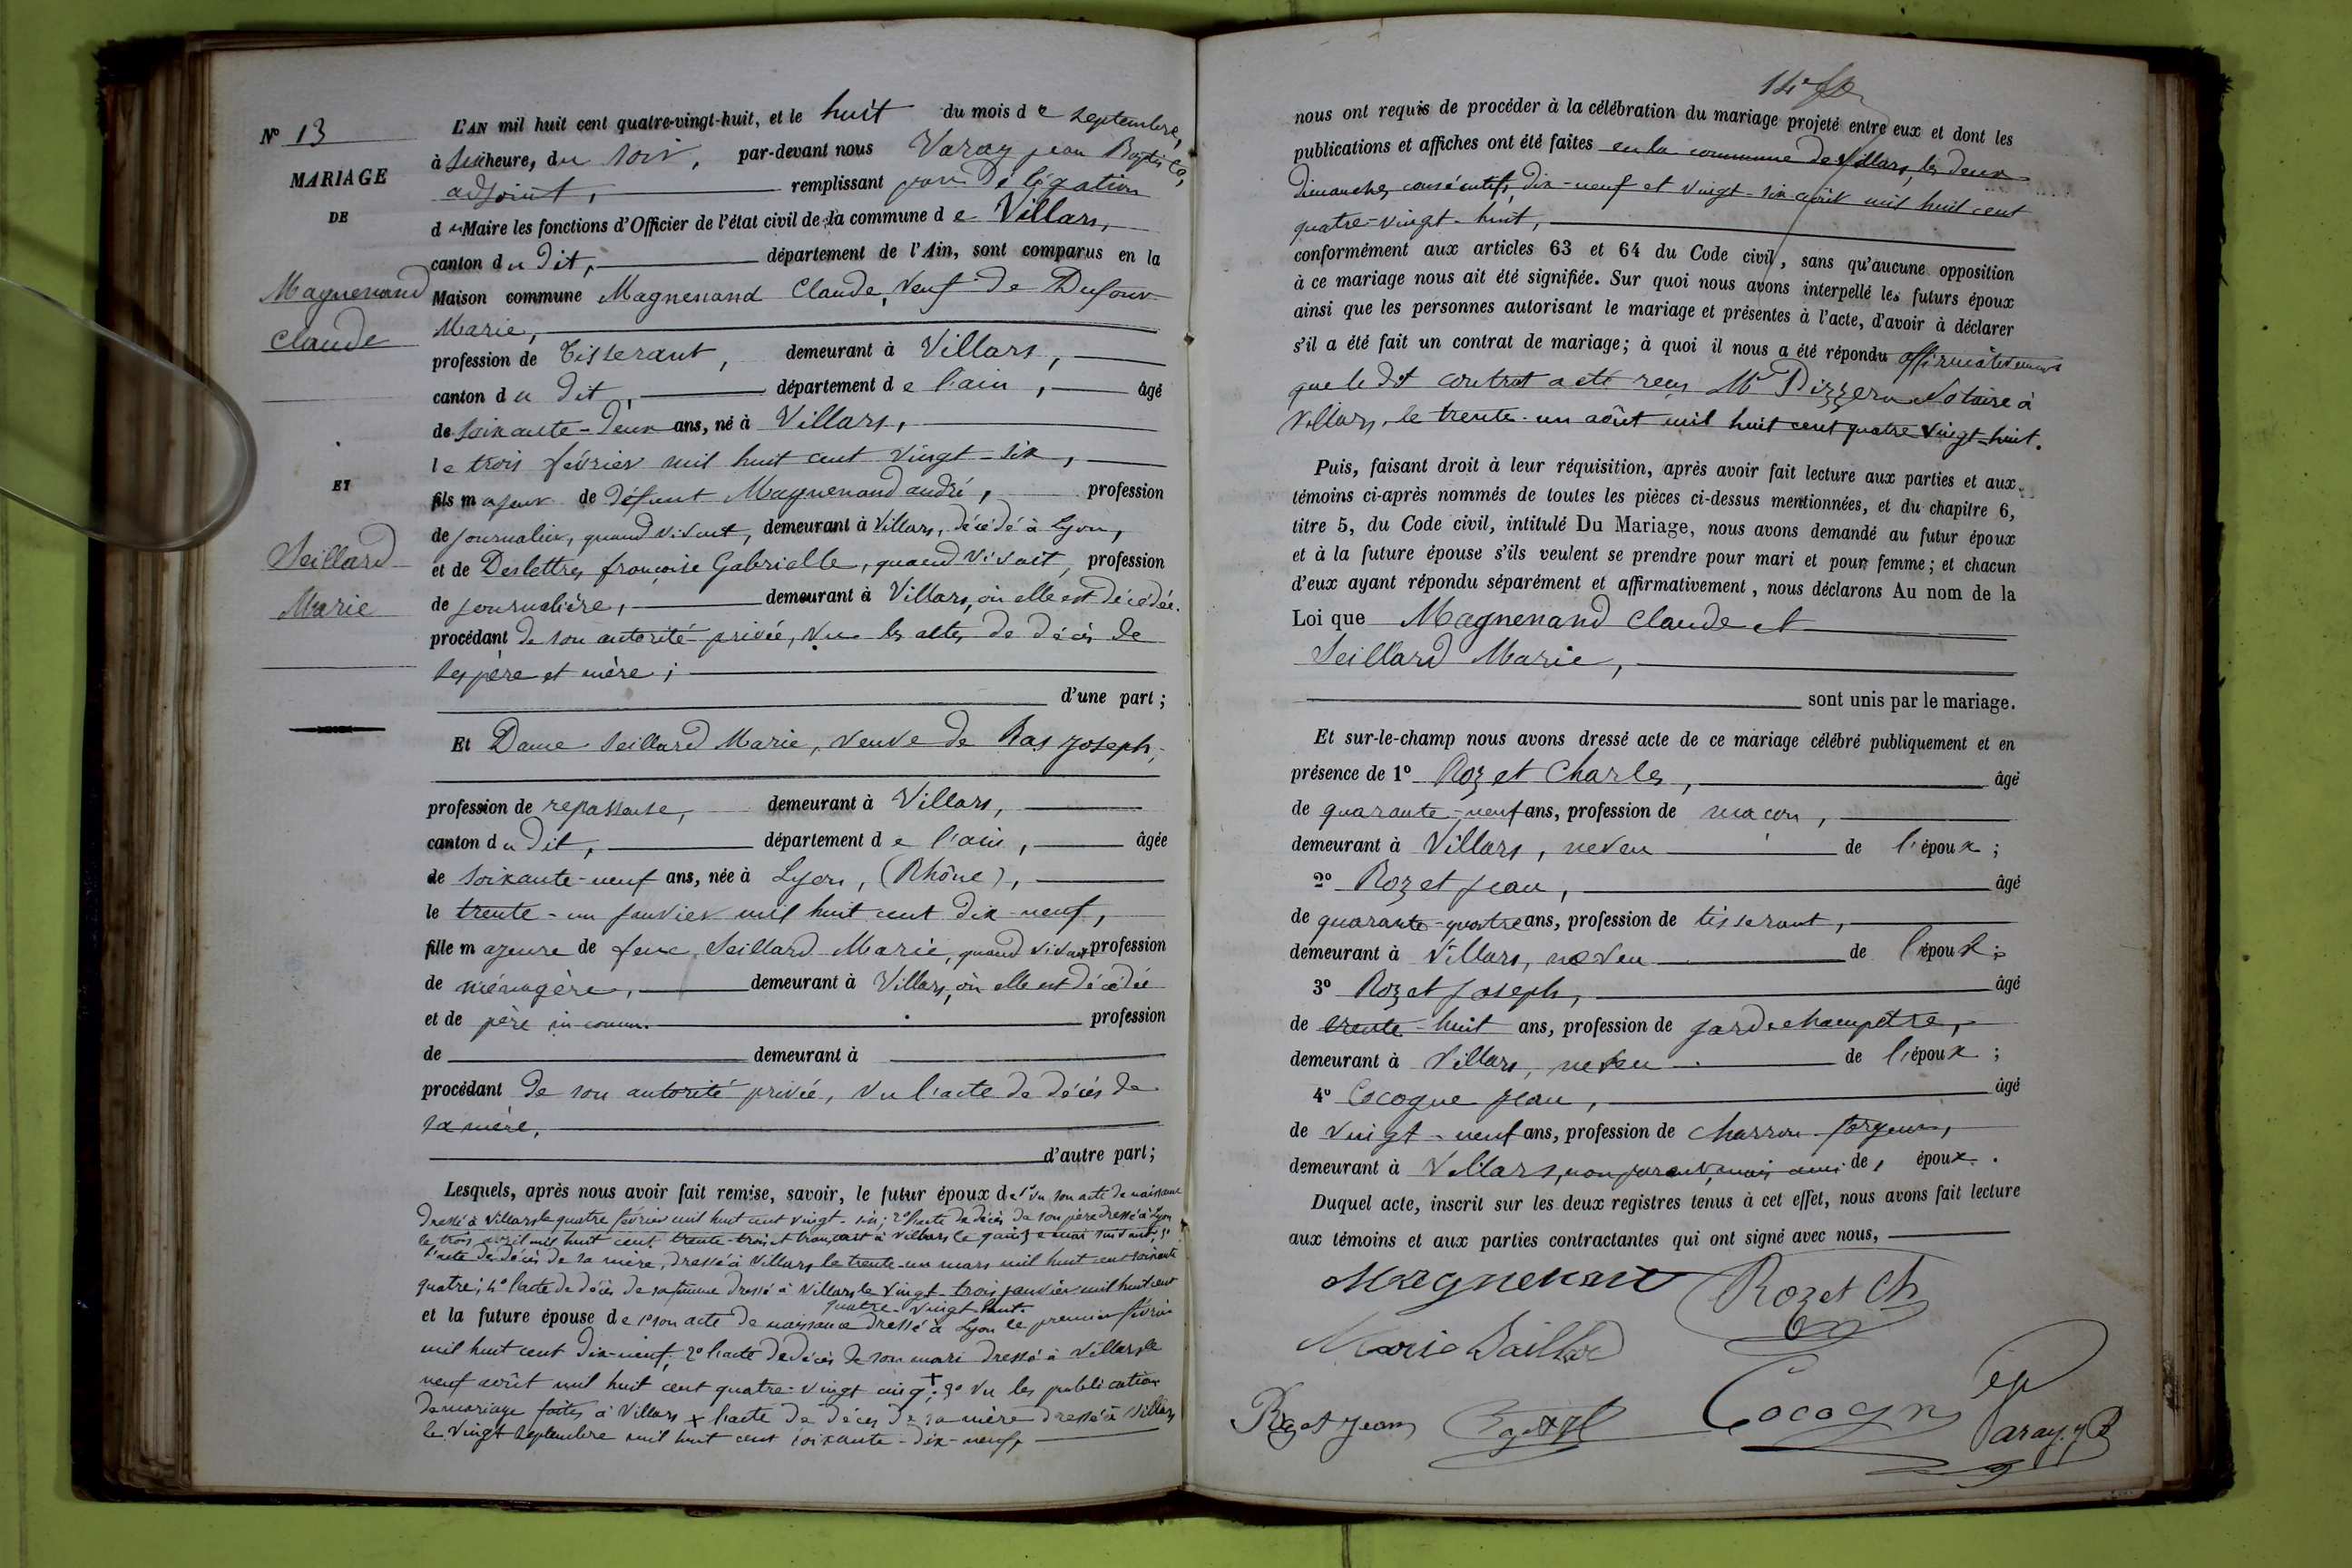 N° 13
MARIAGE
DE
Magnenand
Claude
ET
Seillard
Marie
L'AN mil huit cent quatre-vingt-huit, et le huit du mois de septembre,
à six heure, du soir, par-devant nous Varay jean Baptista,
adjoint, remplissant par délégation
du Maire les fonctions d'Officier de l'état civil de la commune de Villars,
canton du dit, département de l'Ain, sont comparus en la
Maison commune Magnenand Claude, veuf de Dufour
Marie,
profession de Tisserant, demeurant à Villars,
canton du dit, département de l'ain, âgé
de soixante-deux ans, né à Villars,
le trois février mil huit cent vingt-six,
fils majeur de défunt Magnenand andré, profession
de journalier, quand vivant, demeurant à Villars, décédé à Lyon,
et de Deslettres françoise Gabrielle, quand vivait, profession
de journalière, demeurant à Villars, où elle est décédée.
procédant de son autorité privée, vu les actes de décès de
ses père et mère;
d'une part;
Et Dame Seillard Marie, veuve de Ras joseph,
profession de repasseuse, demeurant à Villars,
canton du dit, département de l'ain, âgée
de soixante-neuf ans, née à Lyon, (Rhône),
le trente-un janvier mil huit cent dix-neuf,
fille majeure de feue Seillard Marie, quand vivant profession
de ménagère, demeurant à Villars, où elle est décédée
et de père inconnu. profession
de demeurant à
procédant de son autorité privée, vu l'acte de décès de
sa mère,
d'autre part;
Lesquels, après nous avoir fait remise, savoir, le futur époux de 1° vu son acte de naissance
dressé à Villars le quatre février mil huit cent vingt-six; 2° l'acte de décès de son père dressé à Lyon
le trois avril mil huit cent trente-trois et transcrit à Villars le quinze mai suivant; 3°
l'acte de décès de sa mère, dressé à Villars le trente-un mars mil huit cent soixante
quatre; 4° l'acte de décès de sa femme dressé à Villars le vingt-trois janvier mil huit cent
quatre-vingt-huit.
et la future épouse de 1° son acte de naissance dressé à Lyon le premier février
mil huit cent dix-neuf; 2° l'acte de décès de son mari dressé à Villars le
neuf août mil huit cent quatre-vingt cinq +; 3° vu les publication
de mariage faites à Villars x l'acte de décès de sa mère dressé à Villars
le vingt septembre mil huit cent soixante-dix-neuf,
14e
nous ont requis de procéder à la célébration du mariage projeté entre eux et dont les
publications et affiches ont été faites en la commune de Villars, les deux
dimanches consécutifs, dix-neuf et vingt-six août mil huit cent
quatre-vingt-huit,
conformément aux articles 63 et 64 du Code civil, sans qu'aucune opposition
à ce mariage nous ait été signifiée. Sur quoi nous avons interpellé les futurs époux
ainsi que les personnes autorisant le mariage et présentes à l'acte, d'avoir à déclarer
s'il a été fait un contrat de mariage; à quoi il nous a été répondu affirmativement
que le dit contrat a été reçu Me Pizzera Notaire à
Villars, le trente-un août mil huit cent quatre vingt-huit.
Puis, faisant droit à leur réquisition, après avoir fait lecture aux parties et aux
témoins ci-après nommés de toutes les pièces ci-dessus mentionnées, et du chapitre 6,
titre 5, du Code civil, intitulé Du Mariage, nous avons demandé au futur époux
et à la future épouse s'ils veulent se prendre pour mari et pour femme; et chacun
d'eux ayant répondu séparément et affirmativement, nous déclarons Au nom de la
Loi que Magnenand Claude et
Seillard Marie,
sont unis par le mariage.
Et sur-le-champ nous avons dressé acte de ce mariage célébré publiquement et en
présence de 1° Rozet Charles, âgé
de quarante-neuf ans, profession de maçon,
demeurant à Villars, neveu de l'époux;
2° Rozet jean, âgé
de quarante-quatre ans, profession de tisserant,
demeurant à Villars, neveu de l'époux;
3° Rozet joseph, âgé
de trente-huit ans, profession de garde champêtre,
demeurant à Villars, neveu de l'époux;
4° Cocogne jean, âgé
de vingt-neuf ans, profession de charron-forgeur,
demeurant à Villars, non parent, mais ami de, époux.
Duquel acte, inscrit sur les deux registres tenus à cet effet, nous avons fait lecture
aux témoins et aux parties contractantes qui ont signé avec nous,
Magnenant Rozet Ch
Marie Saillard
Rozet Jean Cocogne Varay. j B